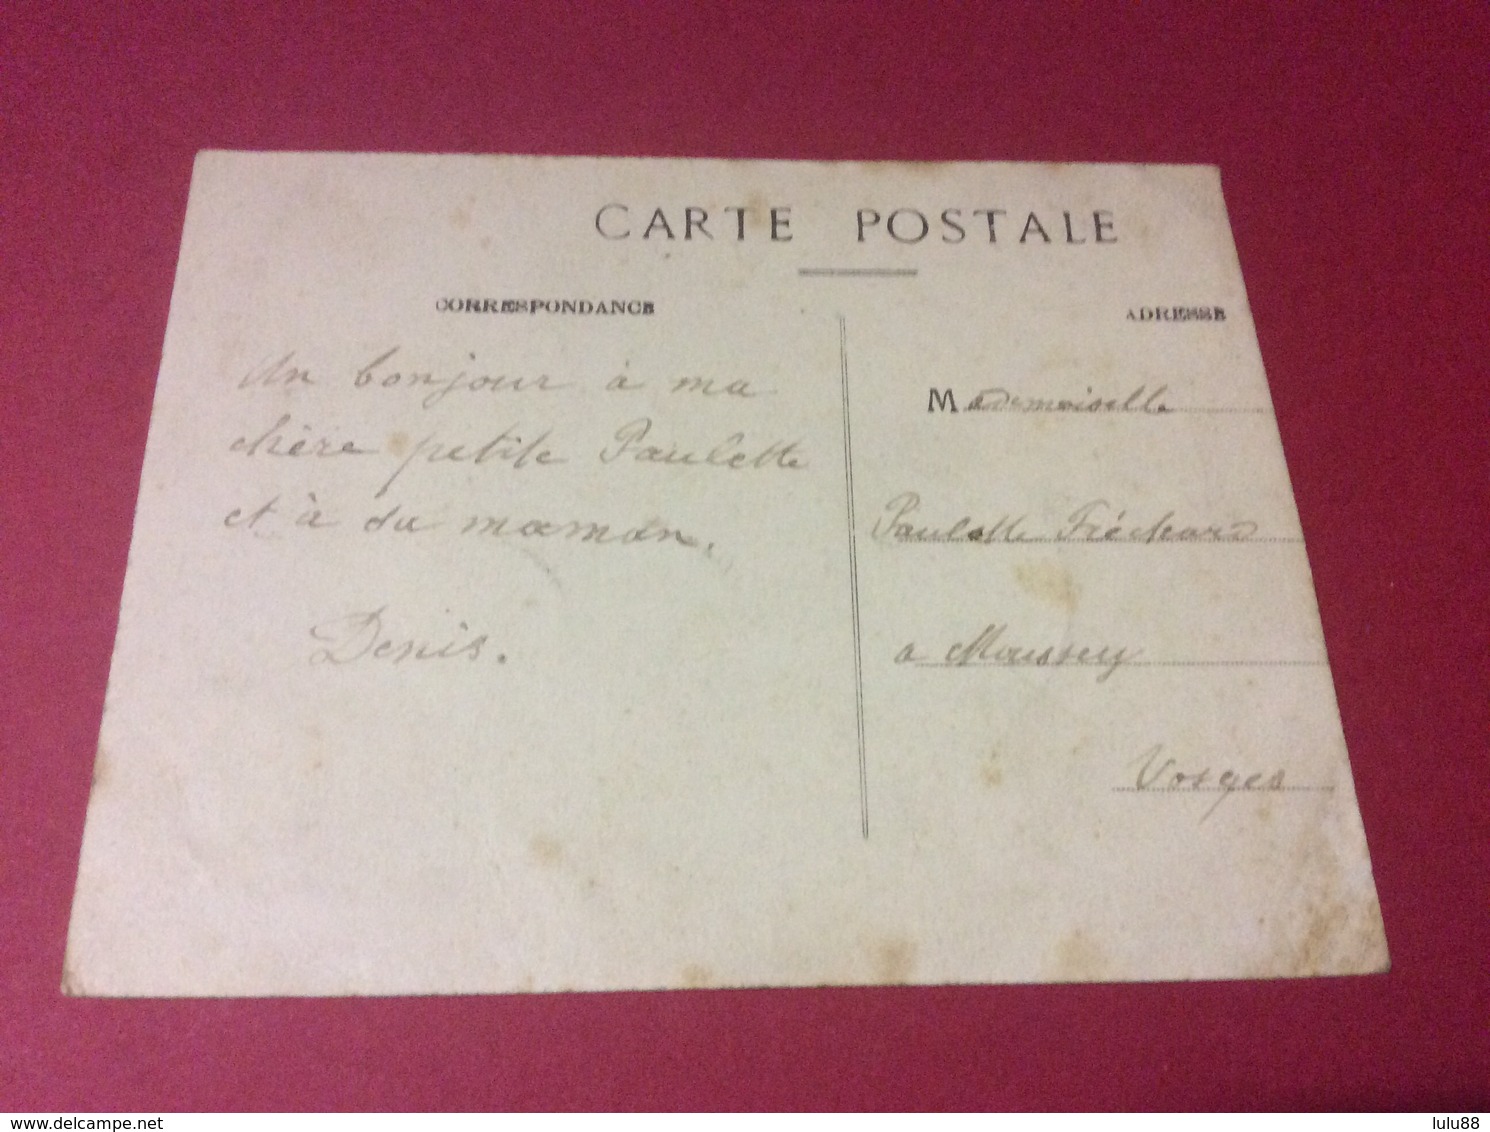 CARTE POSTALE
CORRESPONDANCE
ADRESSE
Un bonjour à ma
chère petite Paulette
et à sa maman.
Denis.
Mademoiselle
Paulette Fréchard
a Moussey
Vosges
delcampe.net
lulu88